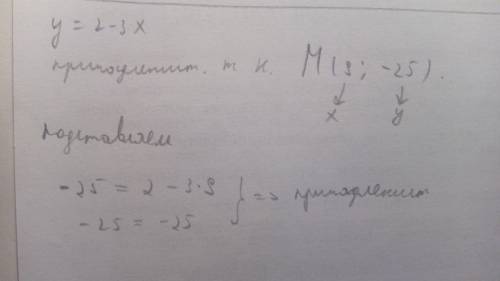 y = 2-3x
принадлежит. т к. M(9; -25).
x y
подставляем
-25 = 2 - 3·9
-25 = -25 } => принадлежит